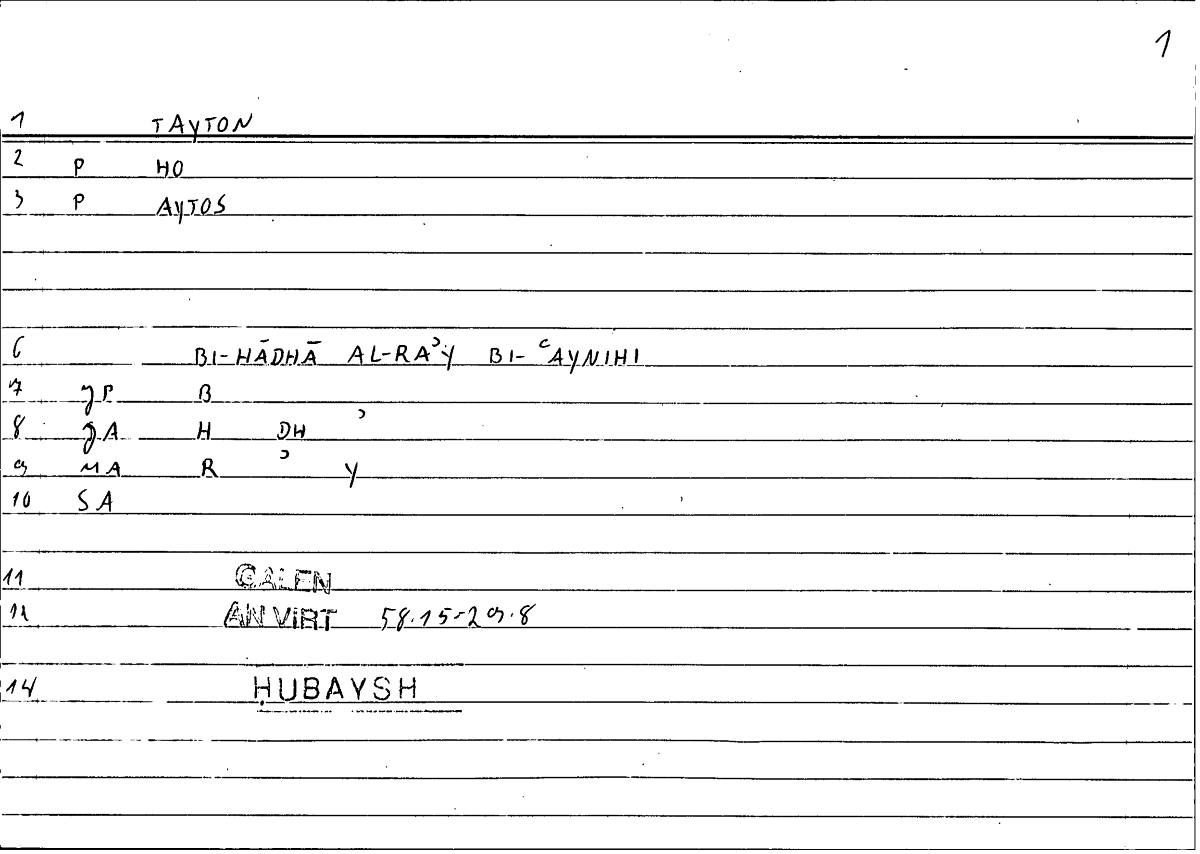 1
1 TAYTON
2 P HO
3 P AYTOS
6 BI-HĀDHĀ AL-RAʾY BI-ʿAYNIHI
7 JP B
8 JA H DH ʾ
9 MA R ʾ Y
10 SA
11 GALEN
12 AN VIRT 58.15-29.8
14 ḤUBAYSH